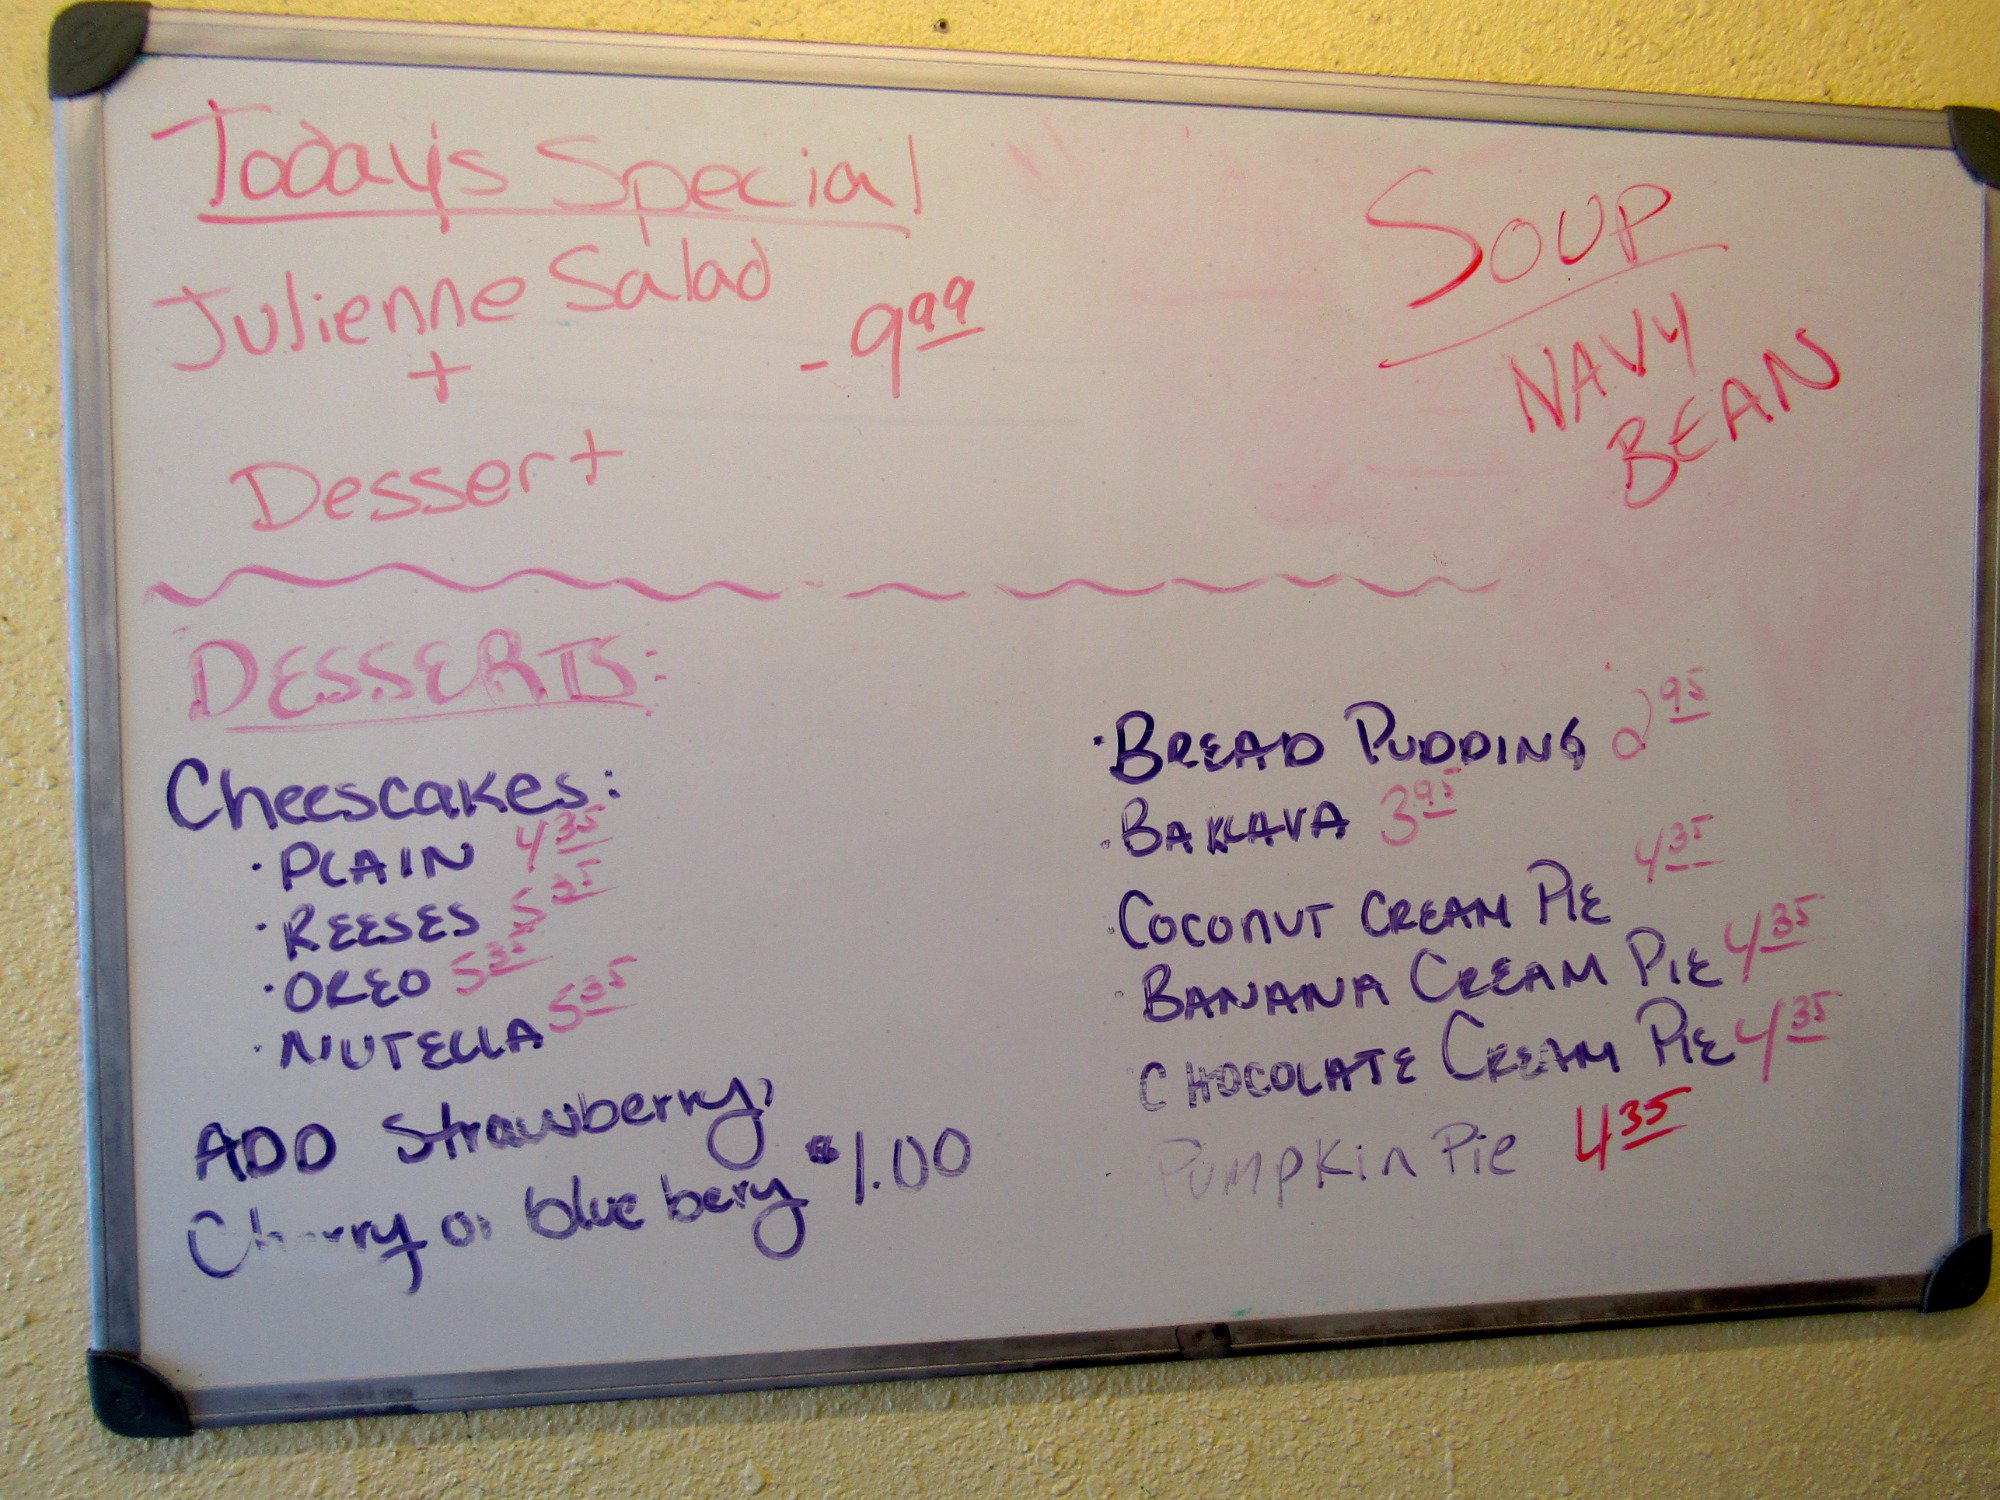 Today's Special
Julienne Salad
+
- 9.99
Dessert
SOUP
NAVY
BEAN
DESSERTS:
Cheescakes:
· PLAIN 4.35
· REESES 5.35
· OREO 5.35
· NUTELLA 5.35
ADD Strawberry,
Cherry or blue bery $1.00
· BREAD PUDDING 2.95
· BAKLAVA 3.95
· COCONUT CREAM PIE 4.35
· BANANA CREAM PIE 4.35
CHOCOLATE CREAM PIE 4.35
Pumpkin Pie 4.35